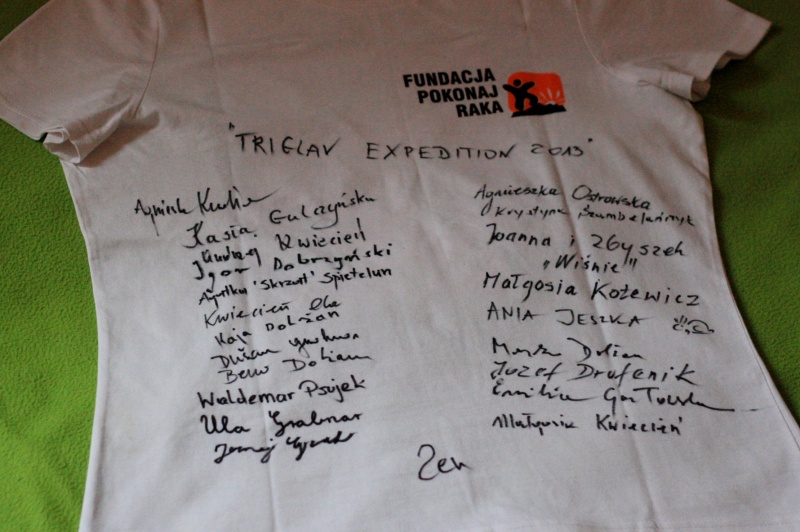 FUNDACJA
POKONAJ
RAKA
"TRIGLAV EXPEDITION 2013"
Kasia Gulczyńska
Andrzej Kwiecień
Igor Dobrzyński
Agatka 'Skrzat' Spietelun
Kwiecień Ola
Kaja Dolžan
Dušan
Beno Dolžan
Waldemar Psujek
Ula Grabnar
Jernej
Agnieszka Ostrowska
Krystyna
Joanna i Zbyszek
"Wiśnie"
Małgosia Kożewicz
ANIA JESZKA
Jozef Drofenik
Emilia
Małgosia Kwiecień
Zen